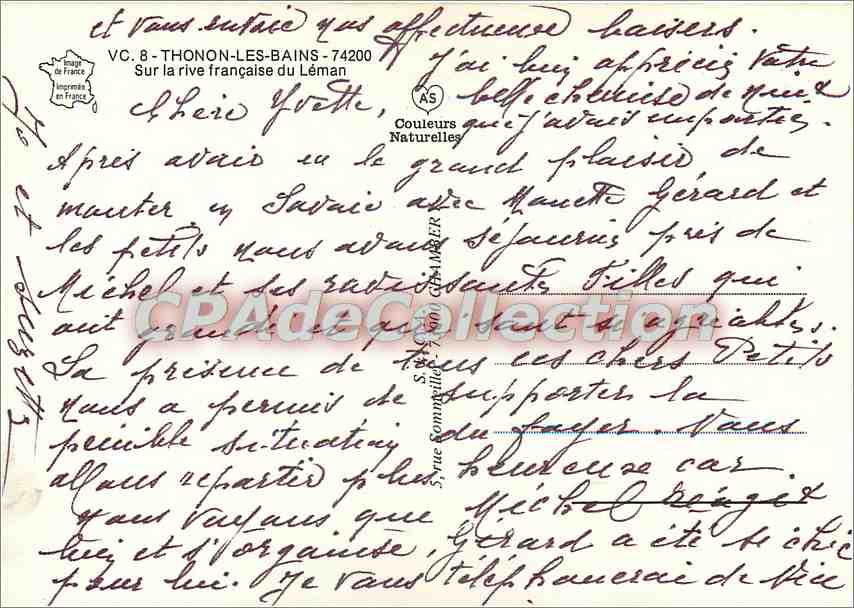 et vous envoie nos affectueux baisers.
VC. 8 - THONON-LES-BAINS - 74200
Sur la rive française du Léman
Image
de France
Imprimée
en France
AS
Couleurs
Naturelles
J'ai bien apprécié votre
belle chemise de nuit
que j'avais emportée.
Chère Yvette,
Après avoir eu le grand plaisir de
monter en Savoie avec Nanette Gérard et
les petits nous avons séjourné près de
Michel et ses ravissantes filles qui
ont grandi et qui sont si agréables.
La présence de tous ces chers Petits
nous a permis de supporter la
pénible situation du foyer. Nous
allons repartir plus heureuse car
nous voyons que Michel réagit
bien et s'organise, Gérard a été si chic
pour lui. Je vous téléphonerai de Nice
et
S.
5, rue Sommeiller - 73000 CHAMBÉRY
CPAdeCollection